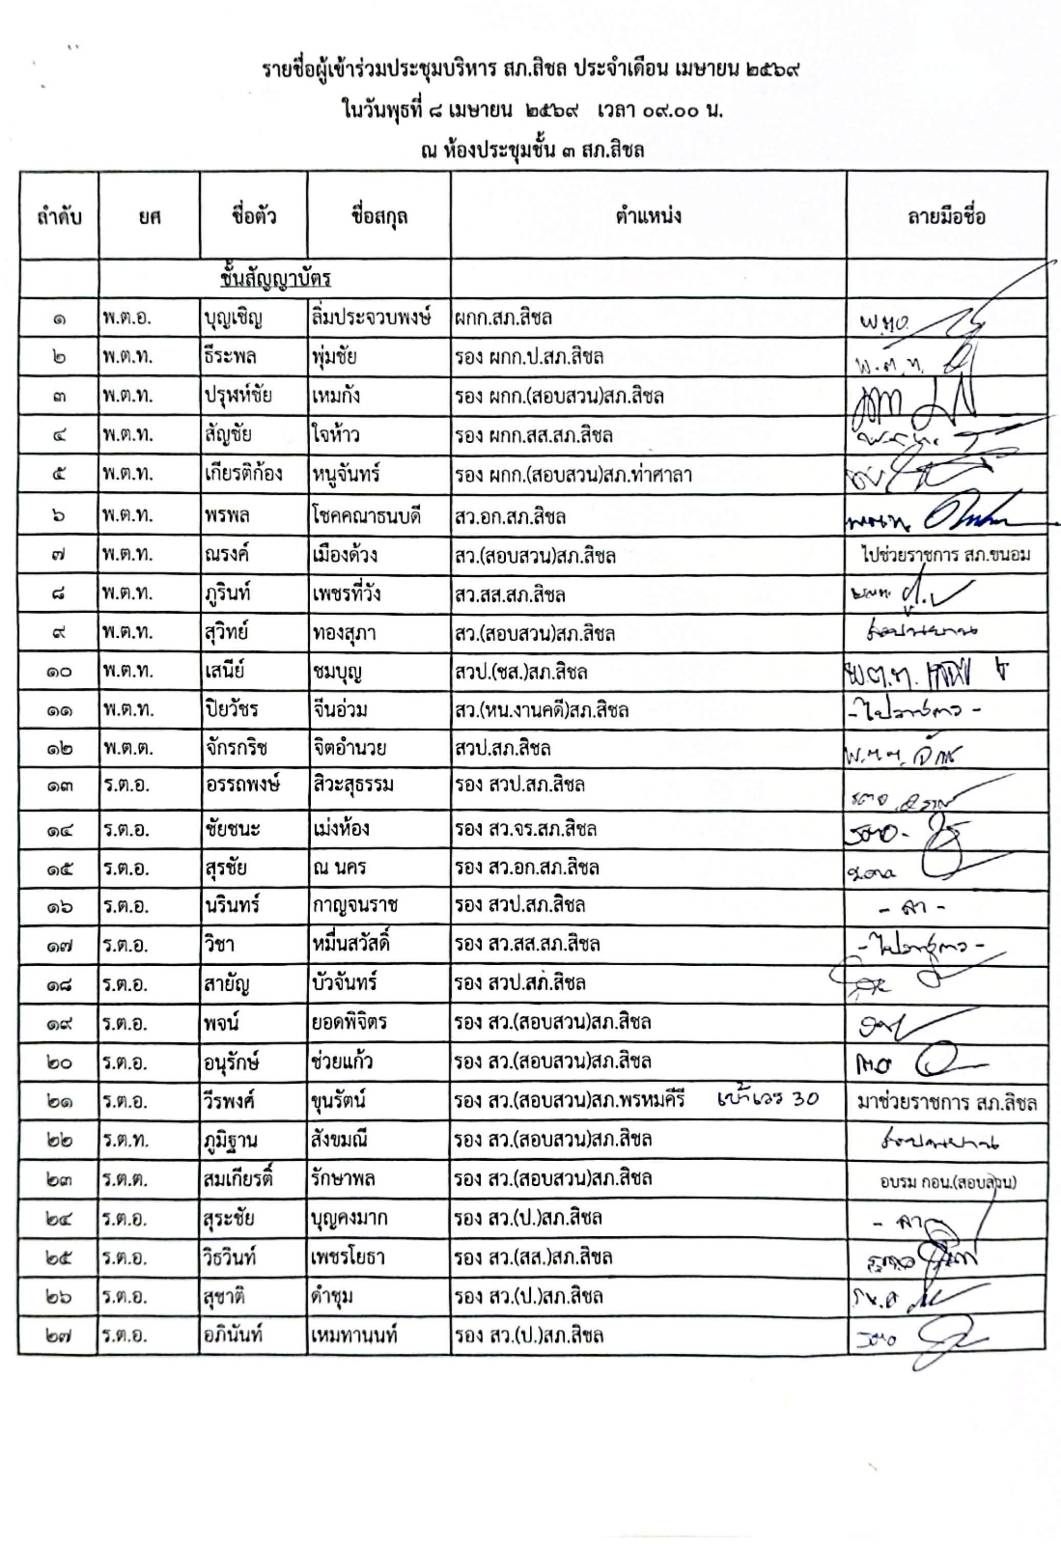 รายชื่อผู้เข้าร่วมประชุมบริหาร สภ.สิชล ประจำเดือน เมษายน ๒๕๖๙
ในวันพุธที่ ๘ เมษายน ๒๕๖๙ เวลา ๐๙.๐๐ น.
ณ ห้องประชุมชั้น ๓ สภ.สิชล
ลำดับ ยศ ชื่อตัว ชื่อสกุล ตำแหน่ง ลายมือชื่อ
ชั้นสัญญาบัตร
๑ พ.ต.อ. บุญเชิญ ลิ่มประจวบพงษ์ ผกก.สภ.สิชล
๒ พ.ต.ท. ธีระพล พุ่มชัย รอง ผกก.ป.สภ.สิชล พ.ต.ท.
๓ พ.ต.ท. ปรุฬห์ชัย เหมกัง รอง ผกก.(สอบสวน)สภ.สิชล
๔ พ.ต.ท. สัญชัย ใจห้าว รอง ผกก.สส.สภ.สิชล
๕ พ.ต.ท. เกียรติก้อง หนูจันทร์ รอง ผกก.(สอบสวน)สภ.ท่าศาลา
๖ พ.ต.ท. พรพล โชคคณาธนบดี สว.อก.สภ.สิชล
๗ พ.ต.ท. ณรงค์ เมืองด้วง สว.(สอบสวน)สภ.สิชล ไปช่วยราชการ สภ.ขนอม
๘ พ.ต.ท. ภูรินท์ เพชรที่วัง สว.สส.สภ.สิชล
๙ พ.ต.ท. สุวิทย์ ทองสุภา สว.(สอบสวน)สภ.สิชล
๑๐ พ.ต.ท. เสนีย์ ชมบุญ สวป.(ชส.)สภ.สิชล พ.ต.ท.
๑๑ พ.ต.ท. ปิยวัชร จีนอ่วม สว.(หน.งานคดี)สภ.สิชล - ไปราชการ -
๑๒ พ.ต.ต. จักรกริช จิตอำนวย สวป.สภ.สิชล
๑๓ ร.ต.อ. อรรถพงษ์ สิวะสุธรรม รอง สวป.สภ.สิชล
๑๔ ร.ต.อ. ชัยชนะ เม่งห้อง รอง สว.จร.สภ.สิชล
๑๕ ร.ต.อ. สุรชัย ณ นคร รอง สว.อก.สภ.สิชล
๑๖ ร.ต.อ. นรินทร์ กาญจนราช รอง สวป.สภ.สิชล - ลา -
๑๗ ร.ต.อ. วิชา หมื่นสวัสดิ์ รอง สว.สส.สภ.สิชล - ไปราชการ -
๑๘ ร.ต.อ. สายัญ บัวจันทร์ รอง สวป.สภ.สิชล
๑๙ ร.ต.อ. พจน์ ยอดพิจิตร รอง สว.(สอบสวน)สภ.สิชล
๒๐ ร.ต.อ. อนุรักษ์ ช่วยแก้ว รอง สว.(สอบสวน)สภ.สิชล
๒๑ ร.ต.อ. วีรพงศ์ ขุนรัตน์ รอง สว.(สอบสวน)สภ.พรหมคีรี เข้าเวร 30 มาช่วยราชการ สภ.สิชล
๒๒ ร.ต.ท. ภูมิฐาน สังขมณี รอง สว.(สอบสวน)สภ.สิชล
๒๓ ร.ต.ต. สมเกียรติ์ รักษาพล รอง สว.(สอบสวน)สภ.สิชล อบรม กอน.(สอบสวน)
๒๔ ร.ต.อ. สุระชัย บุญคงมาก รอง สว.(ป.)สภ.สิชล - ลา
๒๕ ร.ต.อ. วิธวินท์ เพชรโยธา รอง สว.(สส.)สภ.สิชล
๒๖ ร.ต.อ. สุชาติ ดำชุม รอง สว.(ป.)สภ.สิชล
๒๗ ร.ต.อ. อภินันท์ เหมทานนท์ รอง สว.(ป.)สภ.สิชล